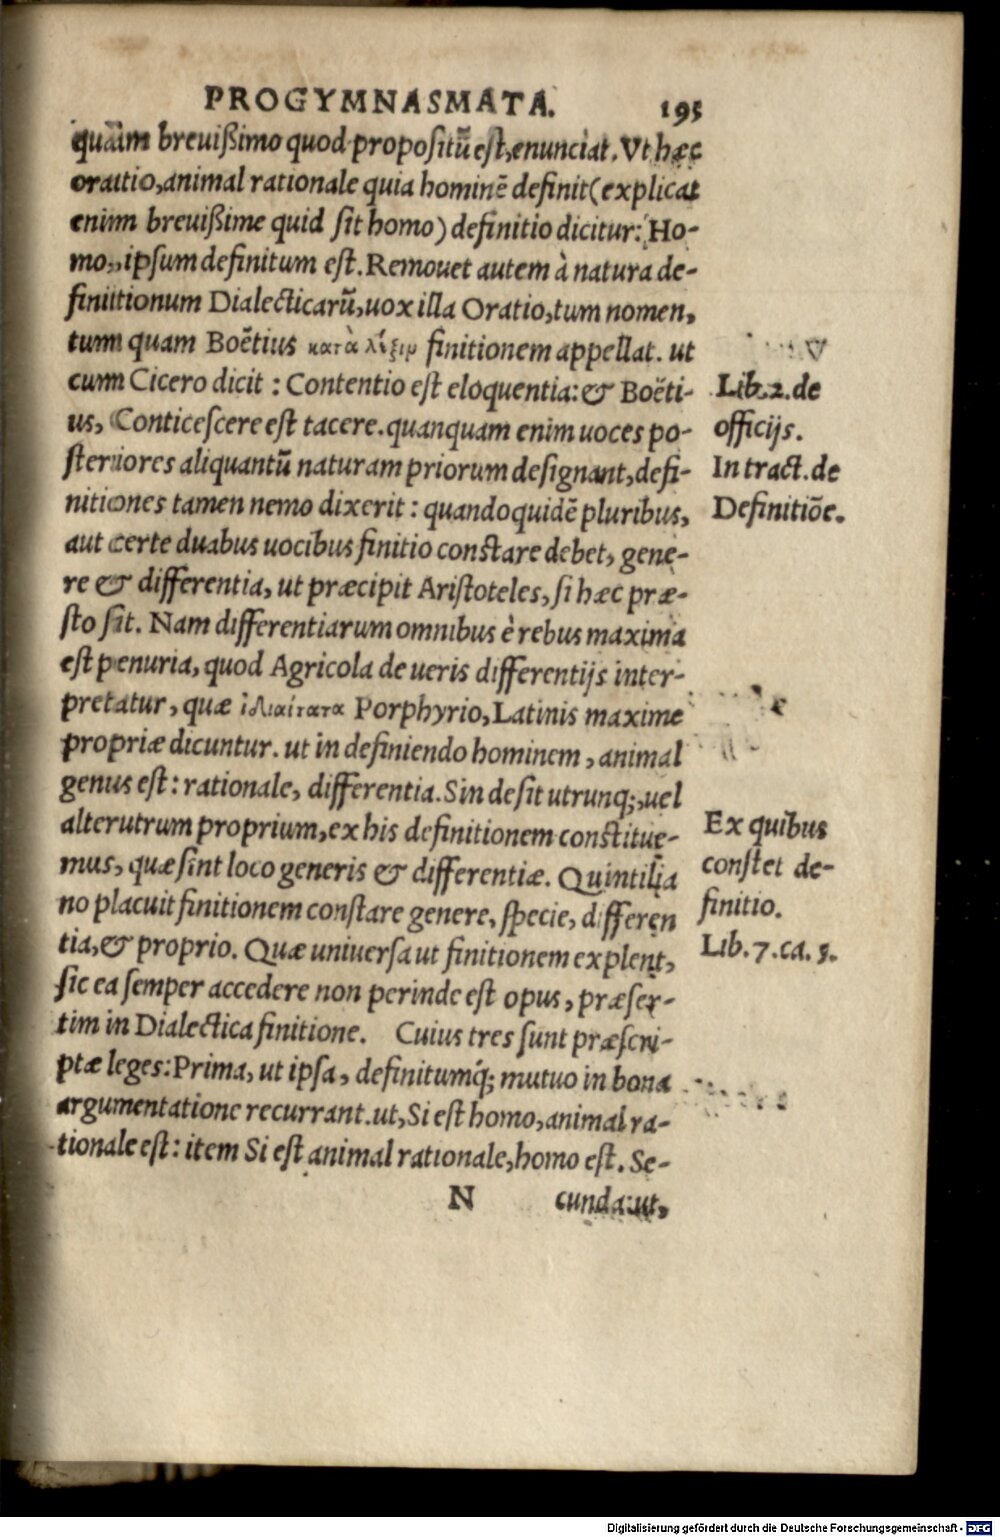 PROGYMNASMATA. 195
quàm breuißimo quod propositū est, enunciat. Vt hæc
oratio, animal rationale quia hominē definit (explicat
enim breuißime quid sit homo) definitio dicitur: Ho-
mo, ipsum definitum est. Remouet autem à natura de-
finitionum Dialecticarū, uox illa Oratio, tum nomen,
tum quam Boëtius κατὰ λέξιν finitionem appellat. ut
cum Cicero dicit: Contentio est eloquentia: & Boëti-
us, Conticescere est tacere. quanquam enim uoces po-
steriores aliquantū naturam priorum designant, defi-
nitiones tamen nemo dixerit: quandoquidē pluribus,
aut certe duabus uocibus finitio constare debet, gene-
re & differentia, ut præcipit Aristoteles, si hæc præ-
sto sit. Nam differentiarum omnibus è rebus maxima
est penuria, quod Agricola de ueris differentijs inter-
pretatur, quæ ἰδιαίτατα Porphyrio, Latinis maxime
propriæ dicuntur. ut in definiendo hominem, animal
genus est: rationale, differentia. Sin desit utrunq;, uel
alterutrum proprium, ex his definitionem constitue-
mus, quæ sint loco generis & differentiæ. Quintilia
no placuit finitionem constare genere, specie, differen
tia, & proprio. Quæ uniuersa ut finitionem explent,
sic ea semper accedere non perinde est opus, præser-
tim in Dialectica finitione. Cuius tres sunt præscri-
ptæ leges: Prima, ut ipsa, definitumq́; mutuo in bona
argumentatione recurrant. ut, Si est homo, animal ra-
tionale est: item Si est animal rationale, homo est. Se-
N cunda: ut,
Lib. 2. de
officijs.
In tract. de
Definitiōe.
Ex quibus
constet de-
finitio.
Lib. 7. ca. 3.
Digitalisierung gefördert durch die Deutsche Forschungsgemeinschaft - DFG